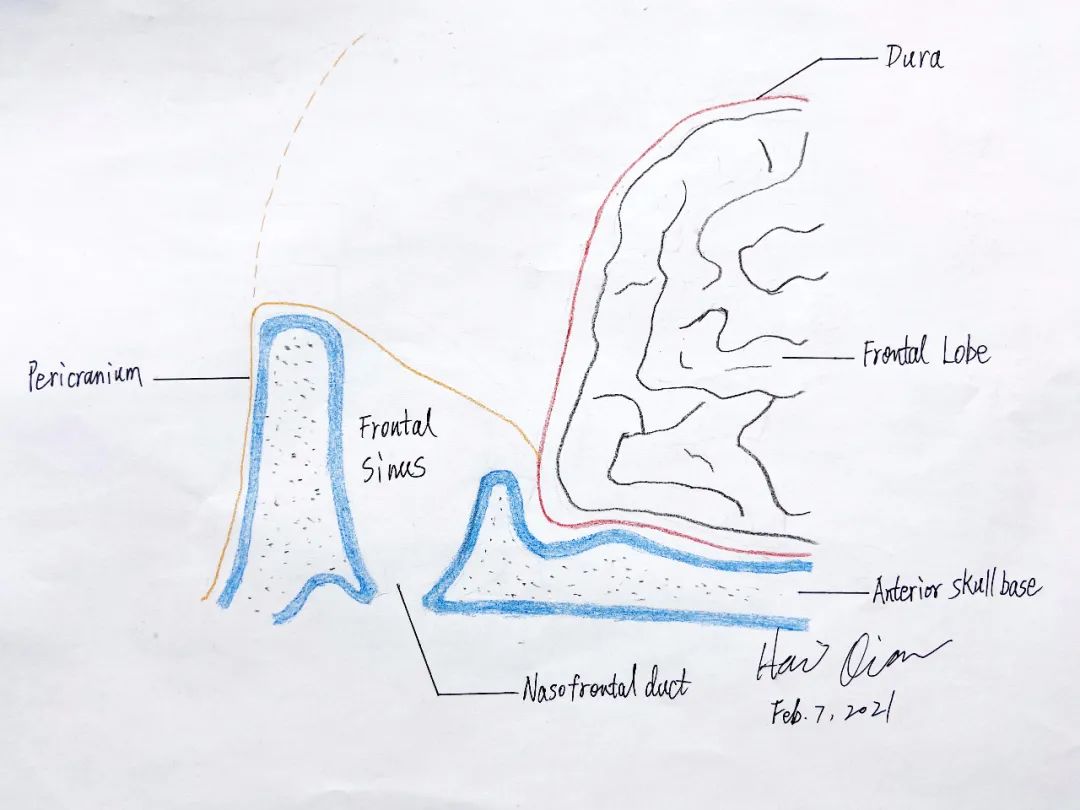 Dura
Frontal Lobe
Pericranium
Frontal
Sinus
Anterior skull base
Nasofrontal duct
Feb. 7, 2021